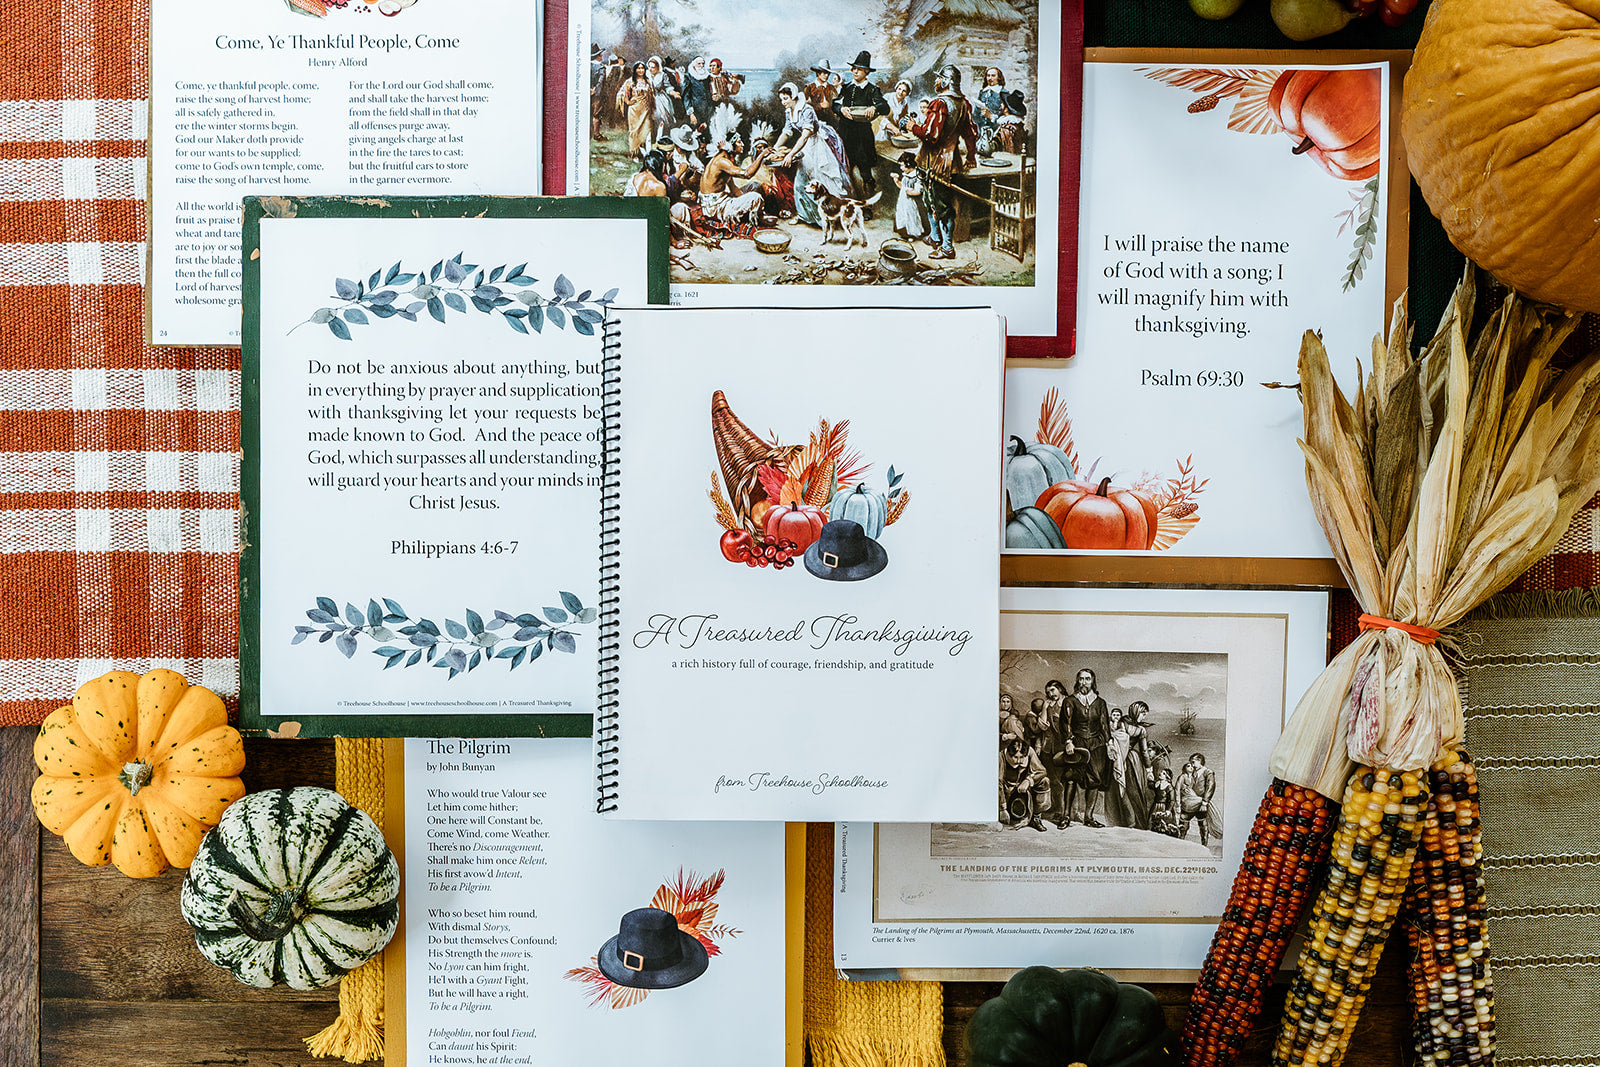 Come, Ye Thankful People, Come
Henry Alford
Come, ye thankful people, come,
raise the song of harvest home;
all is safely gathered in,
ere the winter storms begin.
God our Maker doth provide
for our wants to be supplied;
come to God's own temple, come,
raise the song of harvest home.
All the world is
fruit as praise t
wheat and tare
are to joy or so
first the blade a
then the full co
Lord of harvest
wholesome gra
24
For the Lord our God shall come,
and shall take the harvest home;
from the field shall in that day
all offenses purge away,
giving angels charge at last
in the fire the tares to cast;
but the fruitful ears to store
in the garner evermore.
© Treehouse Schoolhouse | www.treehouseschoolhouse.com | A T
g ca. 1621
rris
I will praise the name
of God with a song; I
will magnify him with
thanksgiving.
Psalm 69:30
Do not be anxious about anything, but
in everything by prayer and supplication
with thanksgiving let your requests be
made known to God. And the peace of
God, which surpasses all understanding,
will guard your hearts and your minds in
Christ Jesus.
Philippians 4:6-7
© Treehouse Schoolhouse | www.treehouseschoolhouse.com | A Treasured Thanksgiving
A Treasured Thanksgiving
a rich history full of courage, friendship, and gratitude
from Treehouse Schoolhouse
The Pilgrim
by John Bunyan
Who would true Valour see
Let him come hither;
One here will Constant be,
Come Wind, come Weather.
There's no Discouragement,
Shall make him once Relent,
His first avow'd Intent,
To be a Pilgrim.
Who so beset him round,
With dismal Storys,
Do but themselves Confound;
His Strength the more is.
No Lyon can him fright,
He'l with a Gyant Fight,
But he will have a right,
To be a Pilgrim.
Hobgoblin, nor foul Fiend,
Can daunt his Spirit:
He knows, he at the end,
THE LANDING OF THE PILGRIMS AT PLYMOUTH, MASS. DEC. 22ND 1620.
The Landing of the Pilgrims at Plymouth, Massachusetts, December 22nd, 1620 ca. 1876
Currier & Ives
| A Treasured Thanksgiving
13